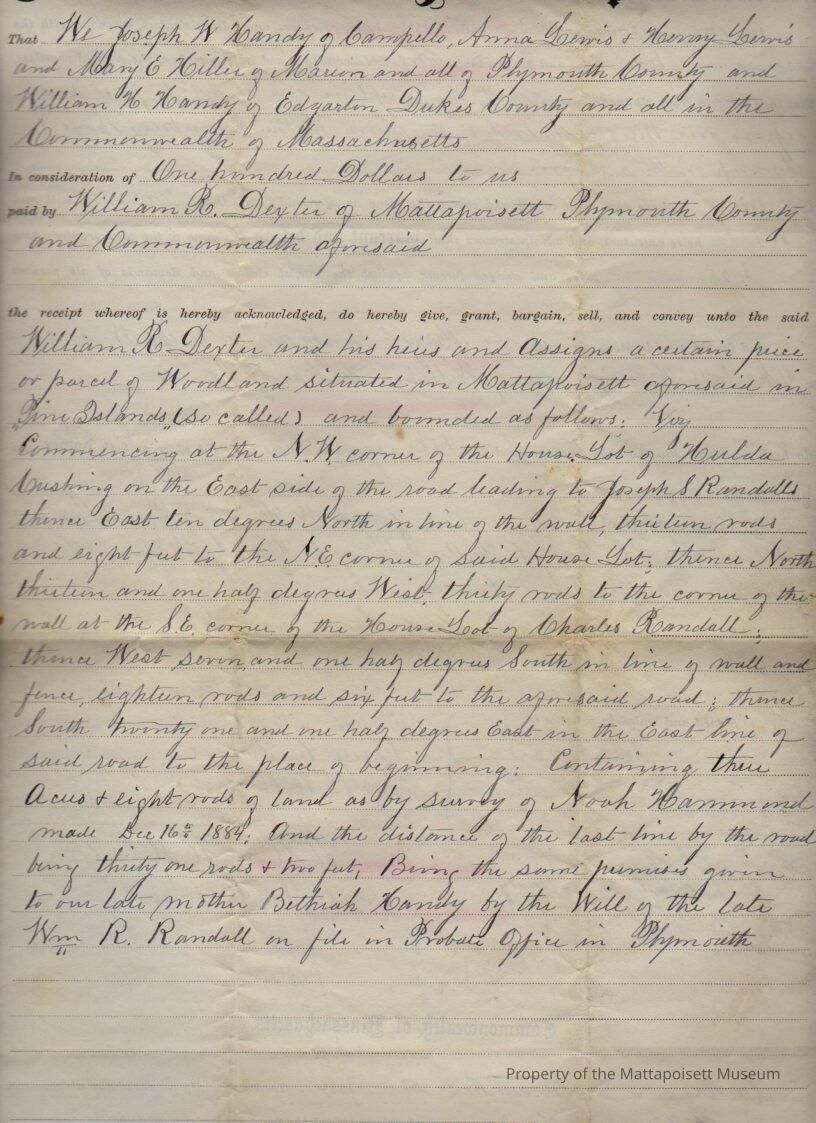 That We Joseph W Handy of Campello, Anna Lewis & Henry Lewis
and Mary E Hiller of Marion and all of Plymouth County and
William H Handy of Edgarton Dukes County and all in the
Commonwealth of Massachusetts
In consideration of One hundred Dollars to us
paid by William R. Dexter of Mattapoisett Plymouth County
and Commonwealth aforesaid
the receipt whereof is hereby acknowledged, do hereby give, grant, bargain, sell, and convey unto the said
William R Dexter and his heirs and Assigns a certain piece
or parcel of Woodland situated in Mattapoisett aforesaid in
"Pine Islands" (so called) and bounded as follows: Viz
Commencing at the N.W. corner of the House Lot of Hulda
Cushing on the East side of the road leading to Joseph S Randalls
thence East ten degrees North in line of the wall, thirteen rods
and eight feet to the N.E. corner of said House Lot; thence North
thirteen and one half degrees West, thirty rods to the corner of the
wall at the S.E. corner of the House Lot of Charles Randall;
thence West seven and one half degrees South in line of wall and
fence, eighteen rods and six feet to the aforesaid road; thence
South twenty one and one half degrees East in the East line of
said road to the place of beginning: Containing three
Acres & eight rods of land as by survey of Noah Hammond
made Dec 16th 1884; And the distance of the last line by the road
being thirty one rods & two feet; Being the same premises given
to our late mother Bethiah Handy by the Will of the late
Wm R. Randall on file in Probate Office in Plymouth
Property of the Mattapoisett Museum